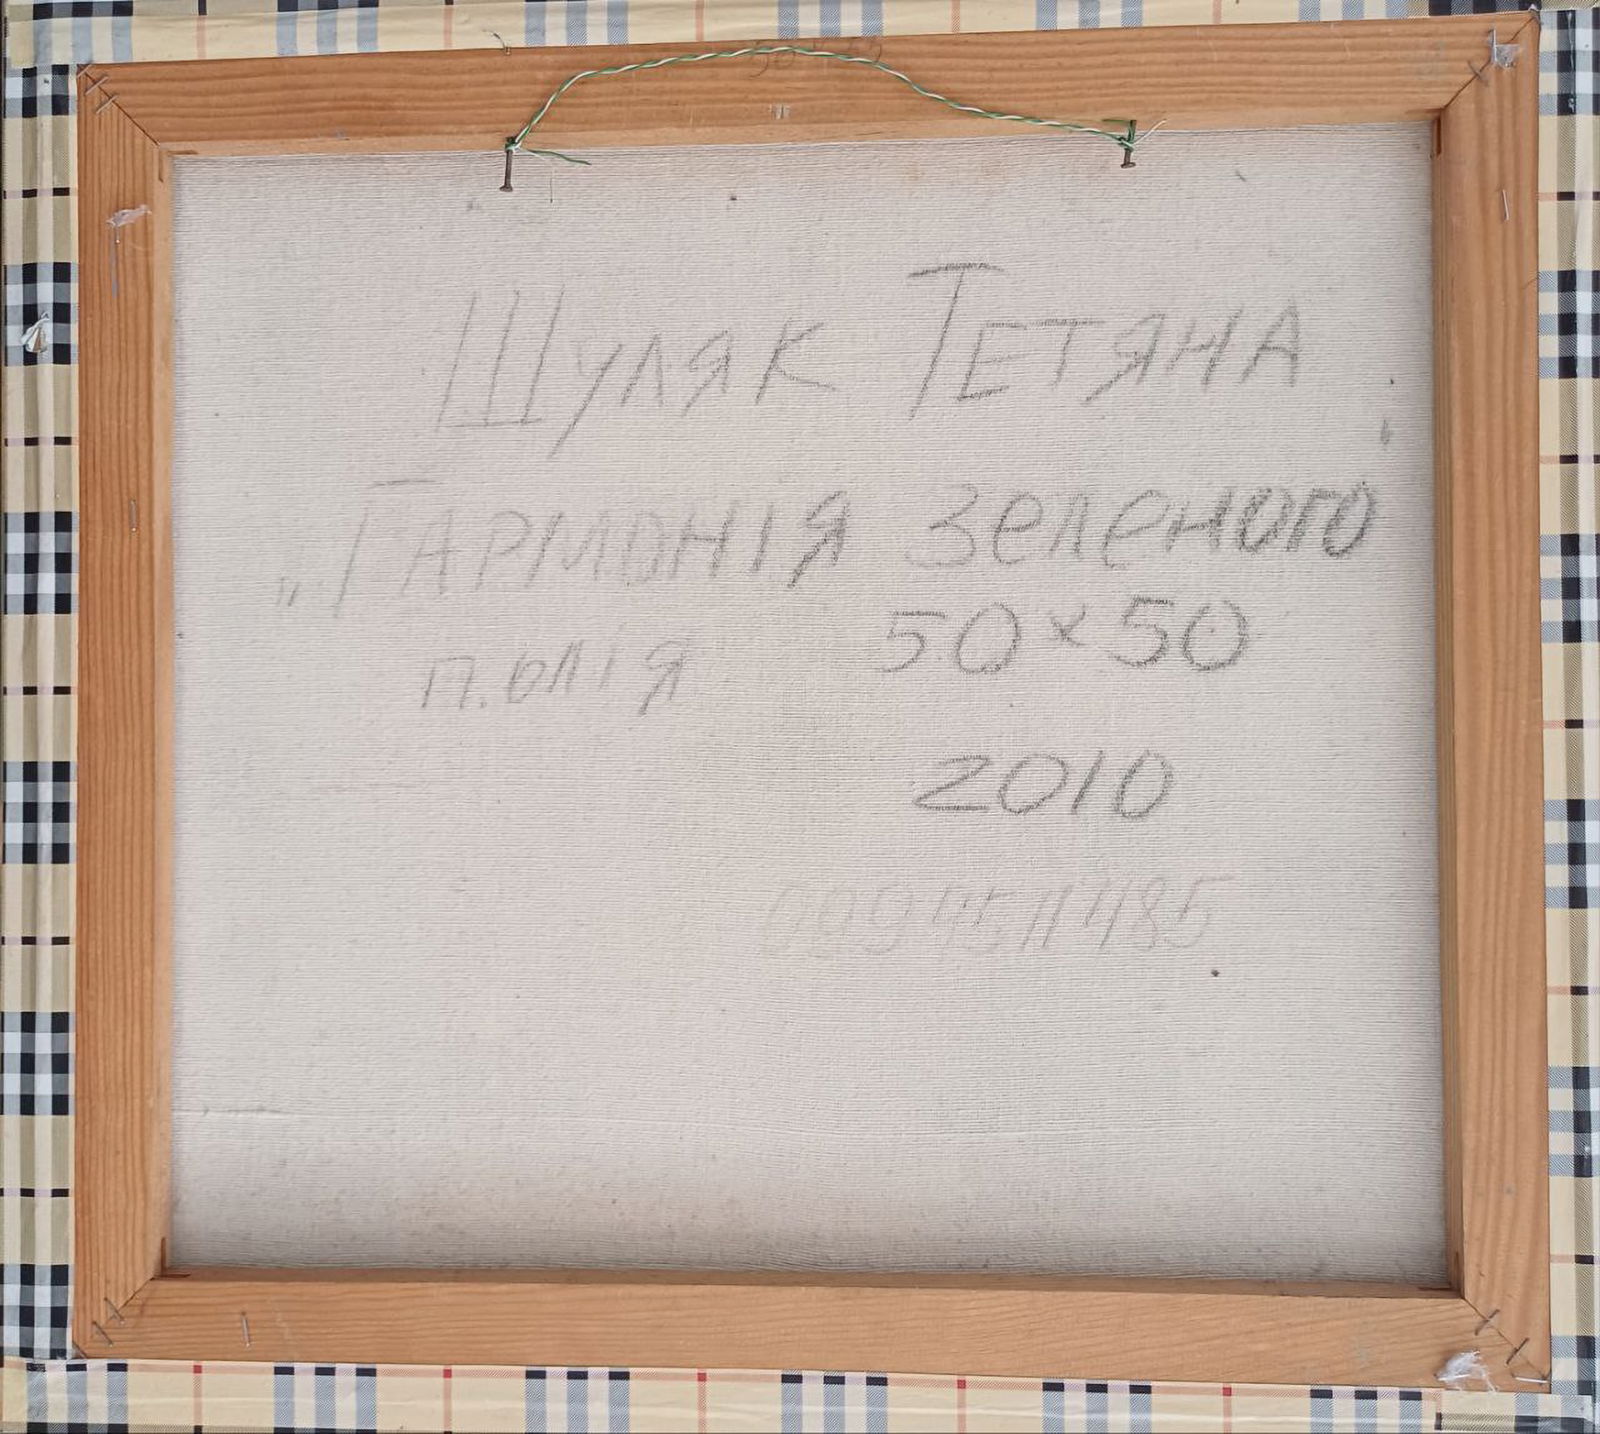 Шуляк Тетяна
„Гармонія зеленого
п.олія 50×50
2010
0994511485